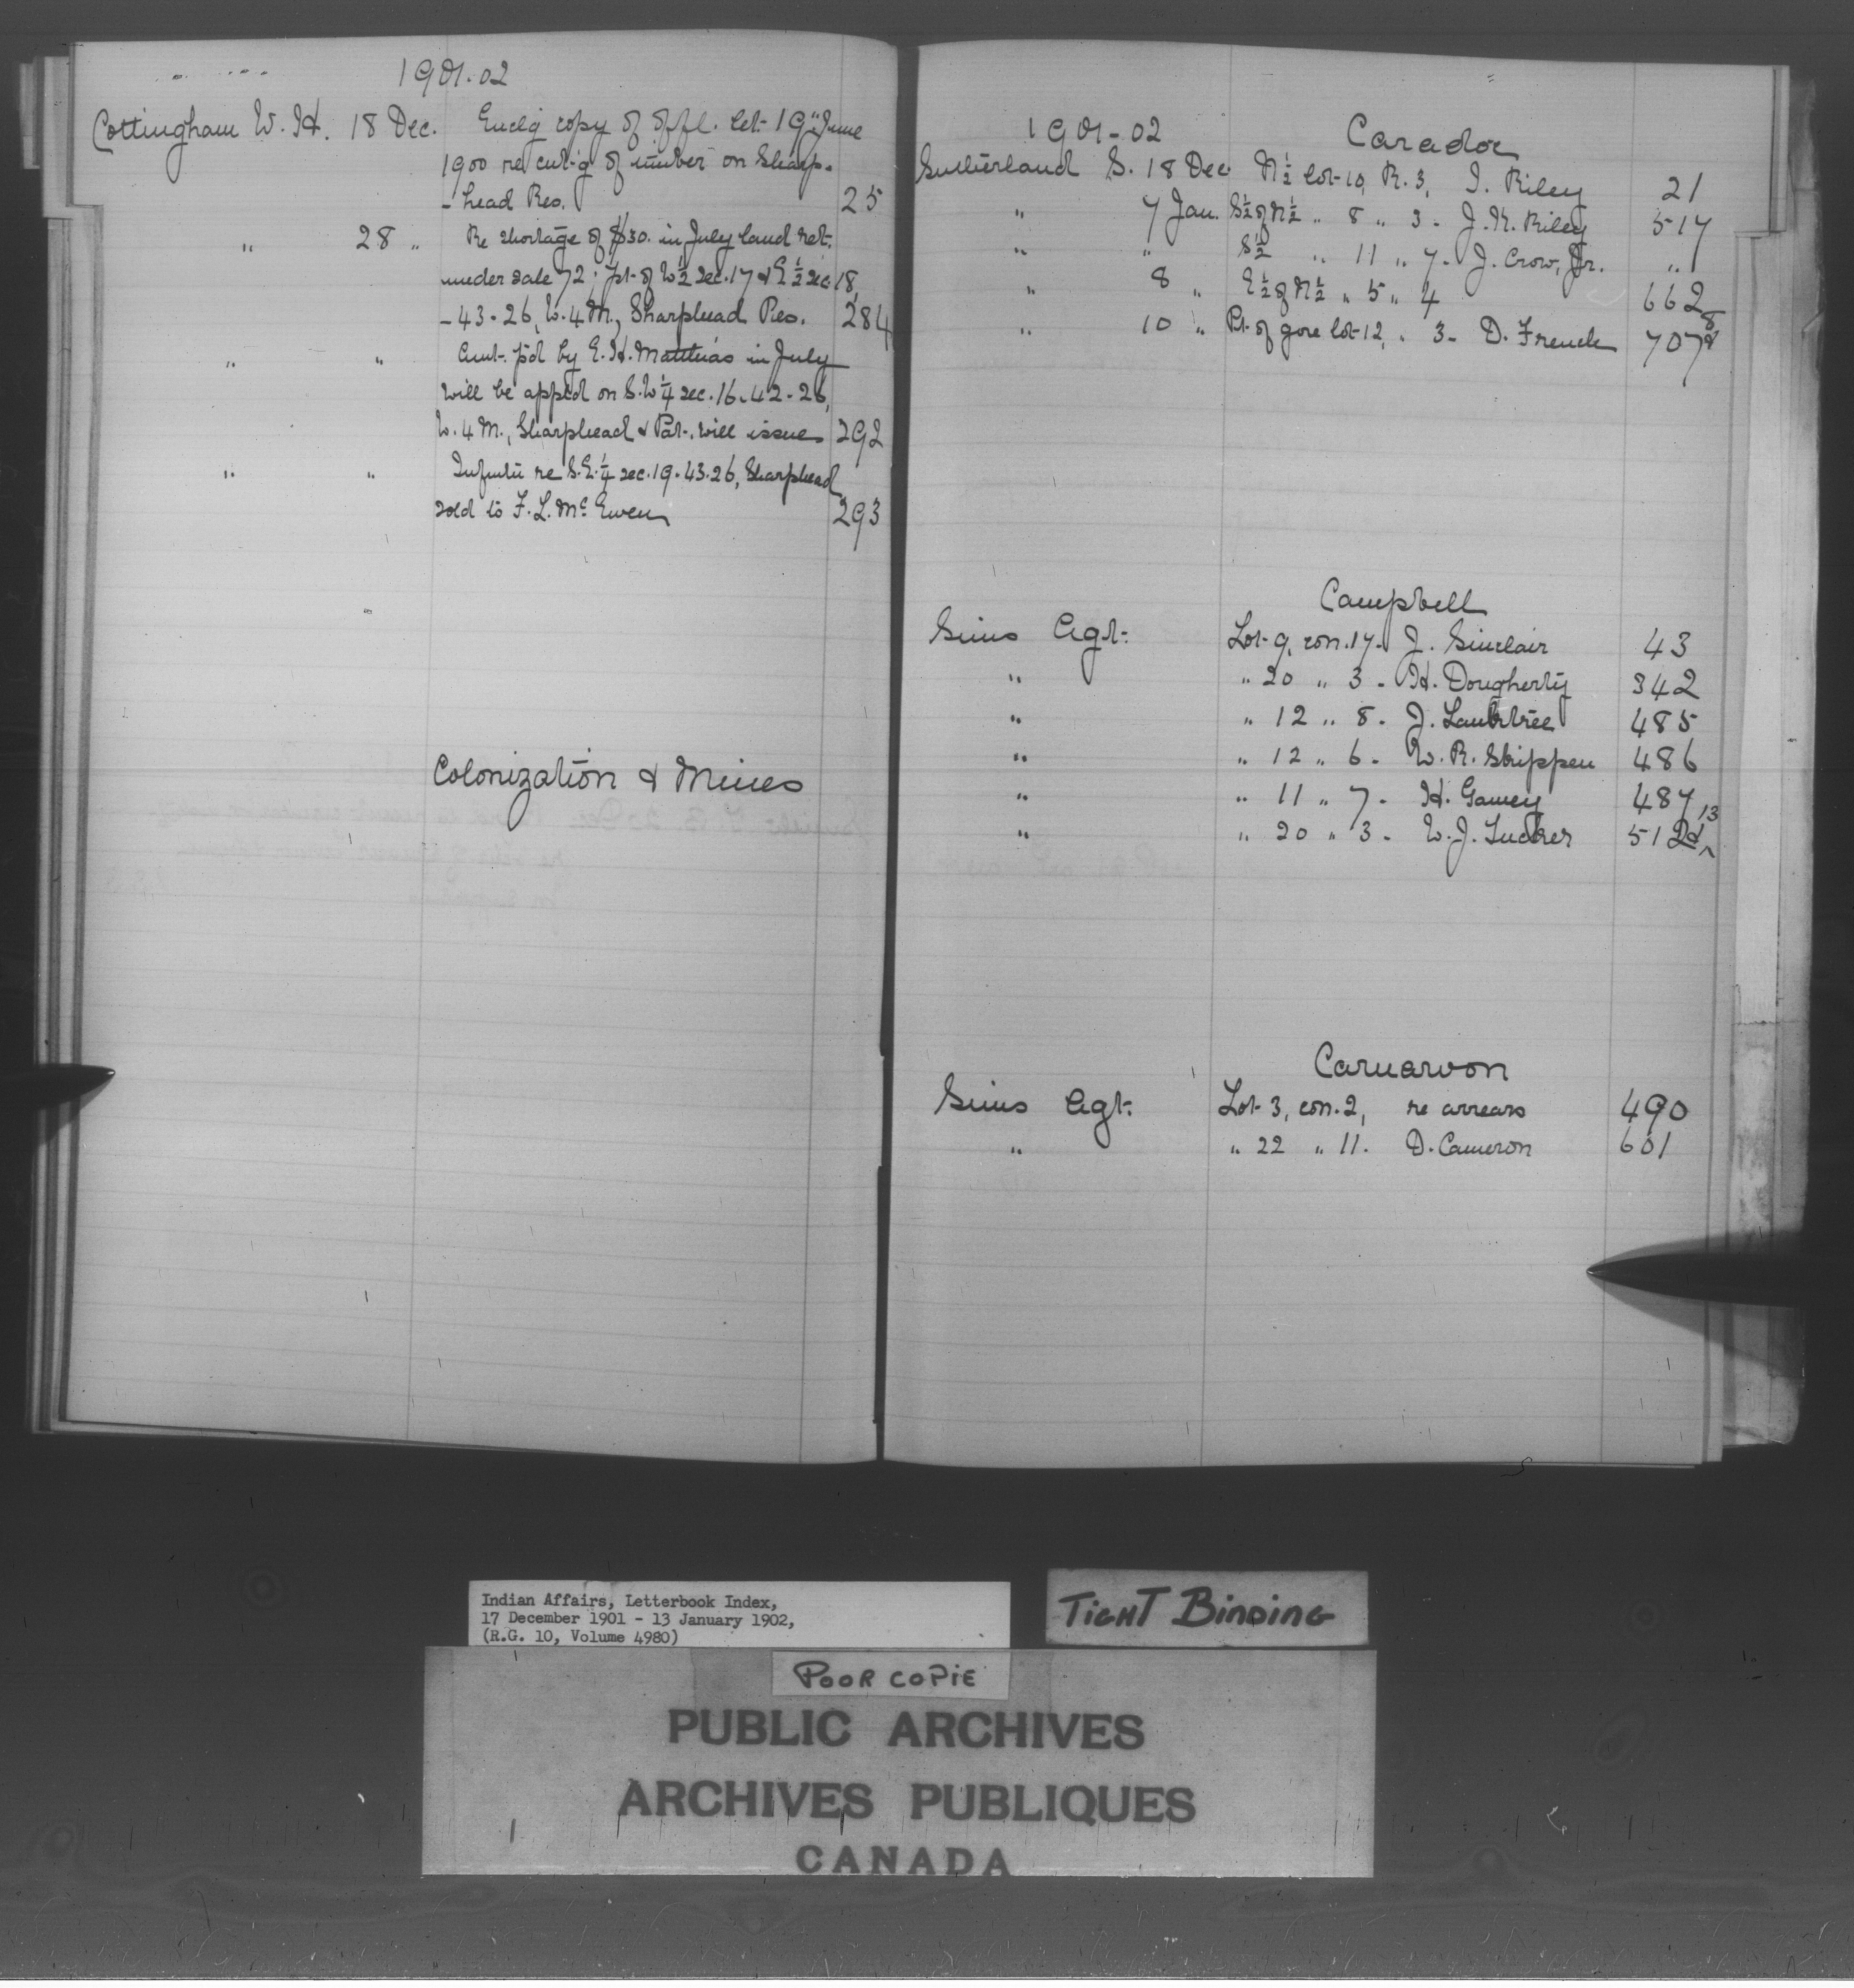 1901-02
Cottingham W. H. 18 Dec. Enclg copy of offl. let. 19th June
1900 re cut-g of timber on Sharp-
-head Res. 25
" 28 " Re shortage of $30. in July land ret.
under sale 72; pt. of W½ sec. 17 & E½ sec. 18,
-43-26, W. 4 M., Sharphead Res. 284
" " Amt. pd by E. H. Matthias in July
will be appld on S.W¼ sec. 16-42-26,
W. 4 M., Sharphead & Pat. will issue 292
" " Infmtn re S.E.¼ sec. 19-43-26, Sharphead
sold to F. L. McEwen 293
Colonization & Mines
1901-02 Caradoc
Sutherland S. 18 Dec. N½ lot 10, R. 3, I. Riley 21
" 7 Jan. S½ of N½ " 8 " 3 - J. H. Riley 517
" " S½ " 11 " 7 - J. Crow, Jr. "
" 8 " E½ of N½ " 5 " 4 662
" 10 " Pt. of gore lot 12, " 3 - D. French 707 8
Campbell
Sims Agt. Lot 9, con. 17 - J. Sinclair 43
" " 20 " 3 - H. Dougherty 342
" " 12 " 8 - J. 485
" " 12 " 6 - W. R. Skippen 486
" " 11 " 7 - H. Gamey 487
" " 20 " 3 - W. J. Tucker 512 13
Carnarvon
Sims Agt. Lot 3, con. 2, re arrears 490
" " 22 " 11. D. Cameron 601
Indian Affairs, Letterbook Index,
17 December 1901 - 13 January 1902,
(R.G. 10, Volume 4980)
TIGHT BINDING
POOR COPIE
PUBLIC ARCHIVES
ARCHIVES PUBLIQUES
CANADA